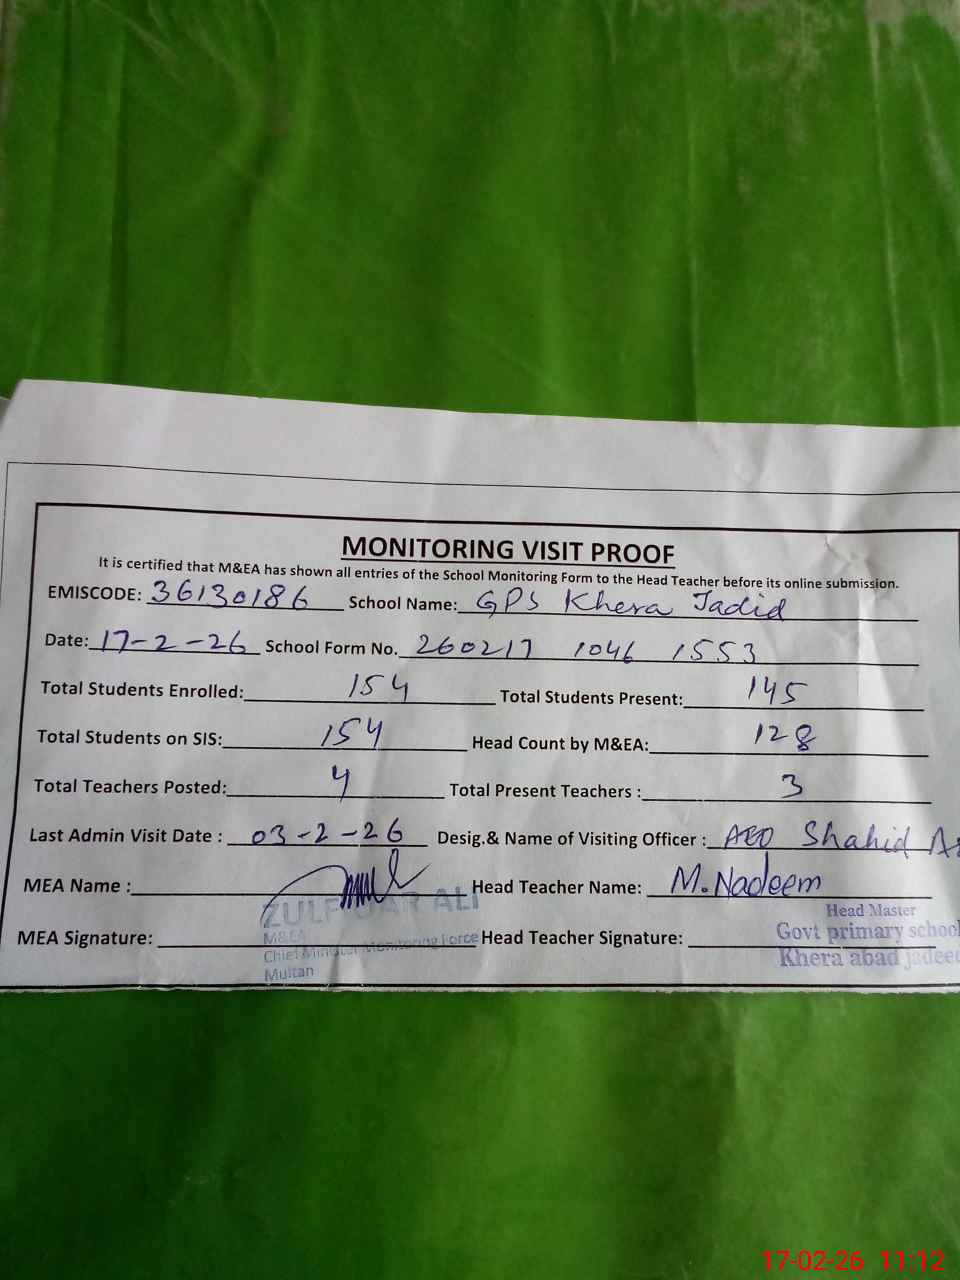 MONITORING VISIT PROOF
It is certified that M&EA has shown all entries of the School Monitoring Form to the Head Teacher before its online submission.
EMISCODE: 36130186 School Name: GPS Khera Jadid
Date: 17-2-26 School Form No. 260217 1046 1553
Total Students Enrolled: 154 Total Students Present: 145
Total Students on SIS: 154 Head Count by M&EA: 128
Total Teachers Posted: 4 Total Present Teachers : 3
Last Admin Visit Date : 03-2-26 Desig.& Name of Visiting Officer : AEO Shahid
MEA Name : Head Teacher Name: M. Nadeem
ALI
MEA Signature: Head Teacher Signature:
M&EA
Chief Minister Monitoring Force
Multan
Head Master
Govt primary school
Khera abad jadeed
17-02-26 11:12